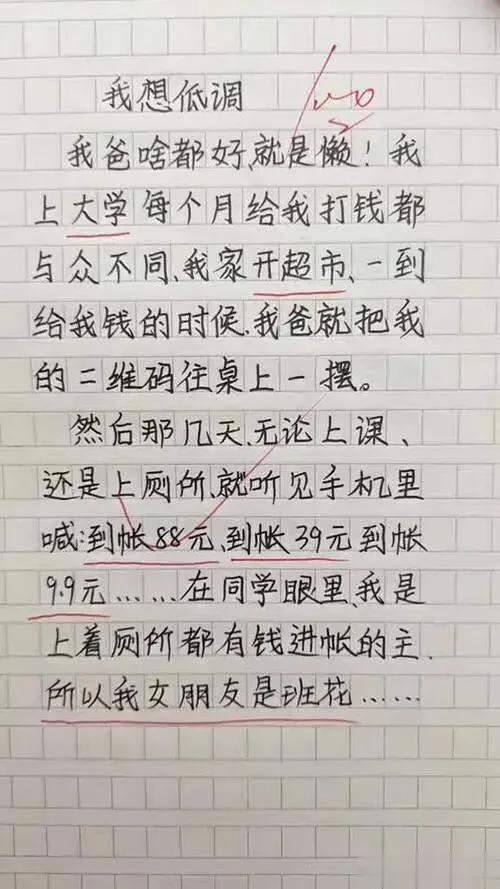 我想低调
我爸啥都好,就是懒!我
上大学每个月给我打钱都
与众不同、我家开超市、一到
给我钱的时候、我爸就把我
的二维码往桌上一摆。
然后那几天、无论上课、
还是上厕所、就听见手机里
喊:到帐88元、到帐39元到帐
9.9元……在同学眼里、我是
上着厕所都有钱进帐的主、
所以我女朋友是班花……